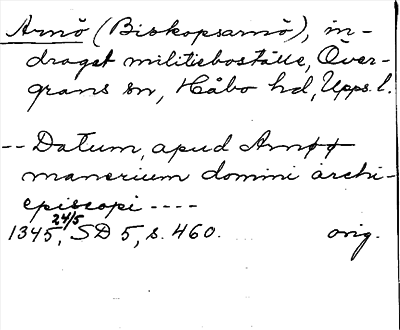 Arnö (Biskopsarnö), in-
draget militieboställe, Över-
grans sn, Håbo hd, Upps. l.
-- Datum, apud Arnøø
manerium domini archi-
episcopi ----
1345 24/5, SD 5, s. 460. orig.